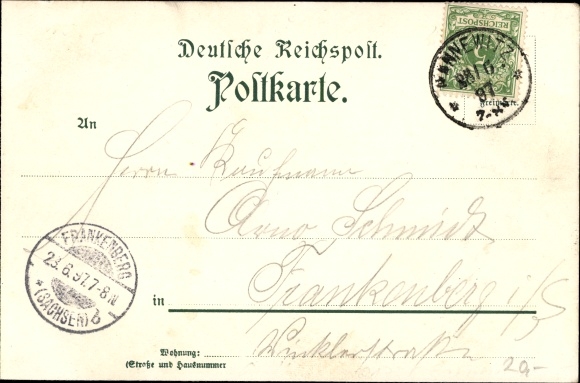 REICHSPOST
Deutsche Reichspost.
Postkarte.
Freimarke.
An
Herrn Kaufmann
Arno Schmidt
FRANKENBERG
23.6.97.7-8.N
*(SACHSEN) b
in Frankenberg i/S
Wohnung:
(Straße und Hausnummer
Winklerstraße
20,-